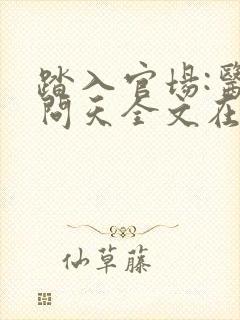 踏入官场:醫
问天全文在
仙草藤